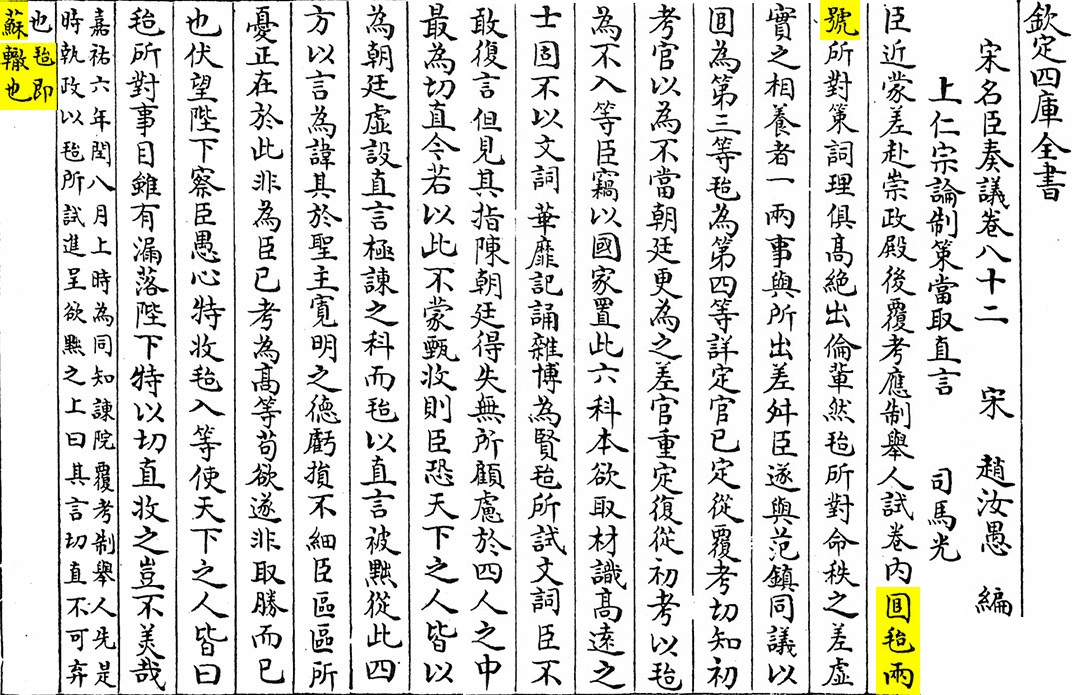 欽定四庫全書
宋名臣奏議卷八十二 宋 趙汝愚 編
上仁宗論制策當取直言 司馬光
臣近蒙差赴崇政殿後覆考應制舉人試卷内兩
號所對策詞理俱髙絶出倫軰然所對命秩之差虚
實之相養者一兩事與所出差舛臣遂與范鎮同議以
為第三等為第四等詳定官已定從覆考切知初
考官以為不當朝廷更為之差官重定復從初考以
為不入等臣竊以國家置此六科本欲取材識髙逺之
士固不以文詞華靡記誦雜博為賢所試文詞臣不
敢復言但見其指陳朝廷得失無所顧慮於四人之中
最為切直今若以此不蒙甄收則臣恐天下之人皆以
為朝廷虚設直言極諫之科而以直言被黜從此四
方以言為諱其於聖主寛明之徳虧損不細臣區區所
憂正在於此非為臣已考為髙等苟欲遂非取勝而已
也伏望陛下察臣愚心特收入等使天下之人皆曰
所對事目雖有漏落陛下特以切直收之豈不美哉
嘉祐六年閏八月上時為同知諫院覆考制舉人先是
時執政以所試進呈欲黜之上曰其言切直不可弃
也即
蘇轍也